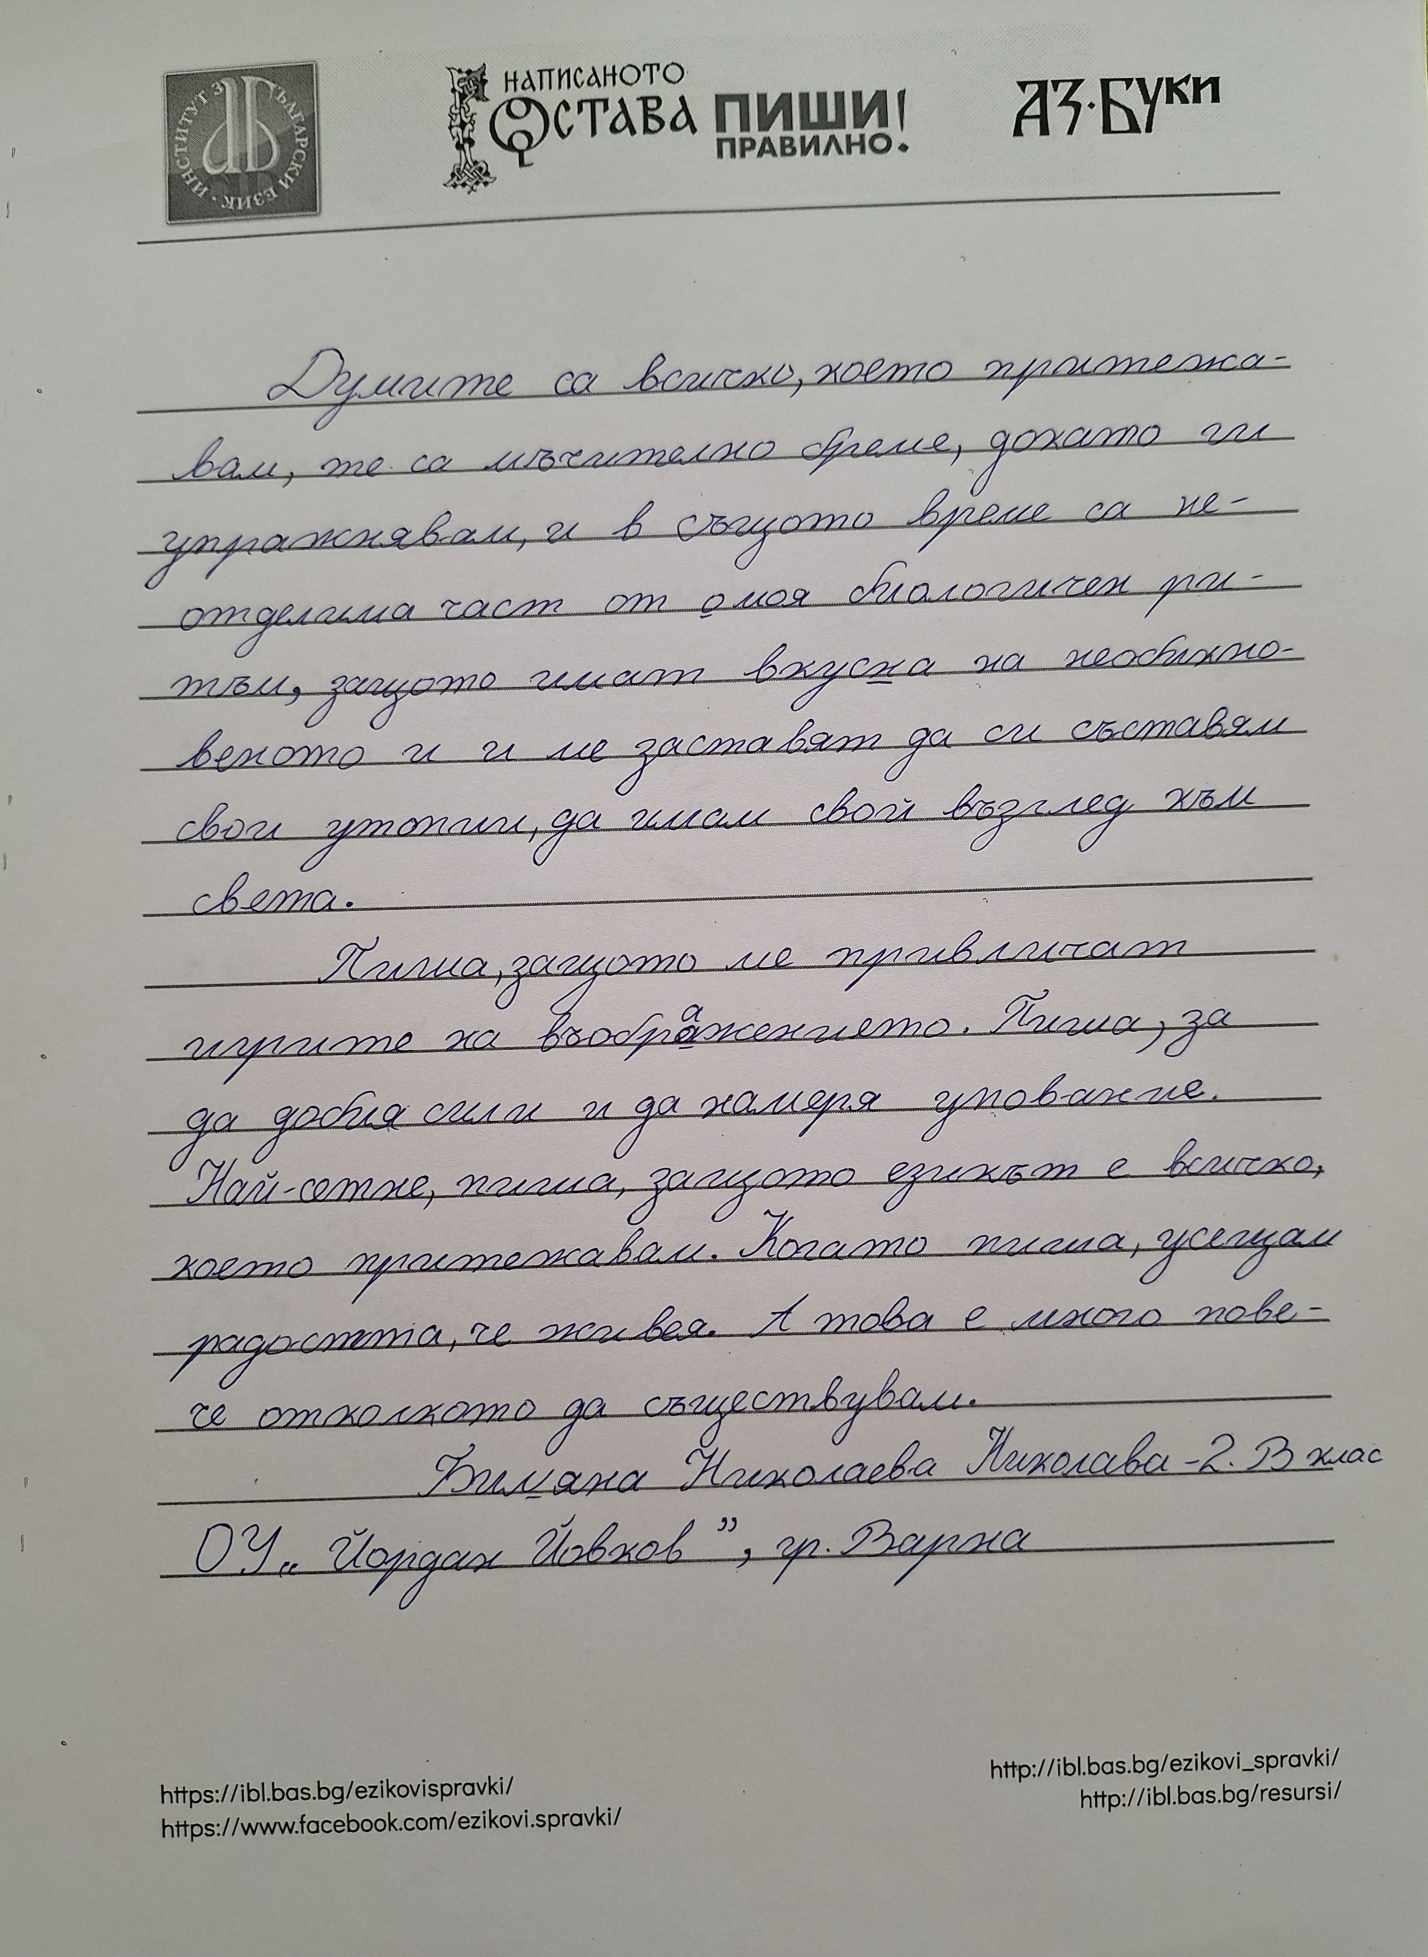 ИНСТИТУТ ЗА БЪЛГАРСКИ ЕЗИК
НАПИСАНОТО
ОСТАВА
ПИШИ
ПРАВИЛНО!
АЗ·БУКИ
Думите са всичко, което притежа-
вам, те са мъчително бреме, докато ги
упражнявам, и в същото време са не-
отделима част от омоя биологичен ри-
тъм, защото имат вкусна на необикно-
веното и и ме заставят да си съставям
свои утопии, да имам свой възглед към
света.
Пиша, защото ме привличат
игрите на въображението. Пиша, за
да добия сили и да намеря упование.
Най-сетне, пиша, защото езикът е всичко,
което притежавам. Когато пиша, усещам
радостта, че живея. А това е много пове-
че отколкото да съществувам.
Билияна Николаева Николава - 2. В клас
ОУ „Йордан Йовков”, гр. Варна
https://ibl.bas.bg/ezikovispravki/
https://www.facebook.com/ezikovi.spravki/
http://ibl.bas.bg/ezikovi_spravki/
http://ibl.bas.bg/resursi/